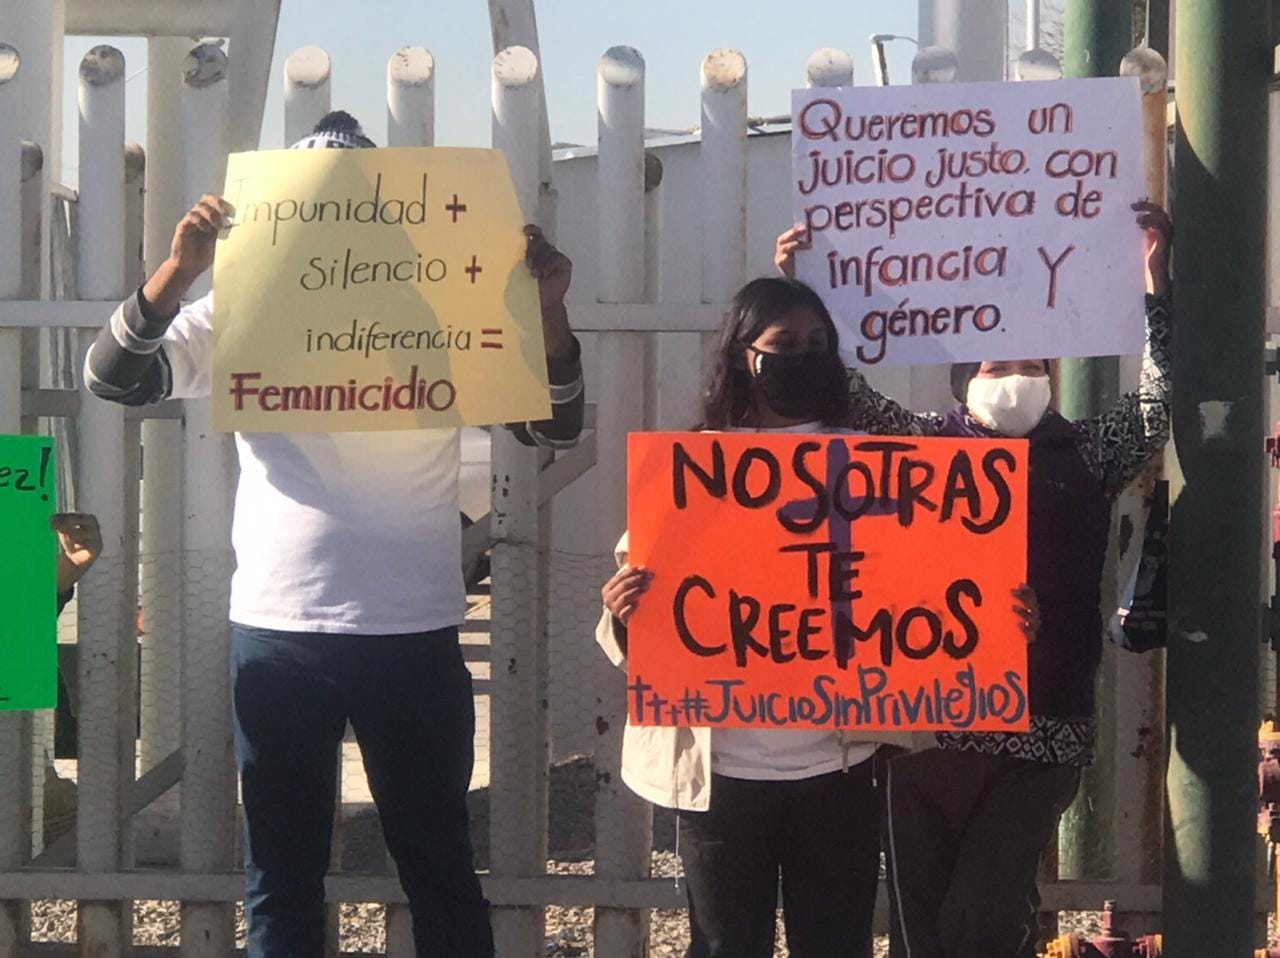 Impunidad +
silencio +
indiferencia =
Feminicidio
Queremos un
juicio justo, con
perspectiva de
infancia y
género.
NOSOTRAS
TE
CREEMOS
#JUICIOSINPRIVILEGIOS
ez!